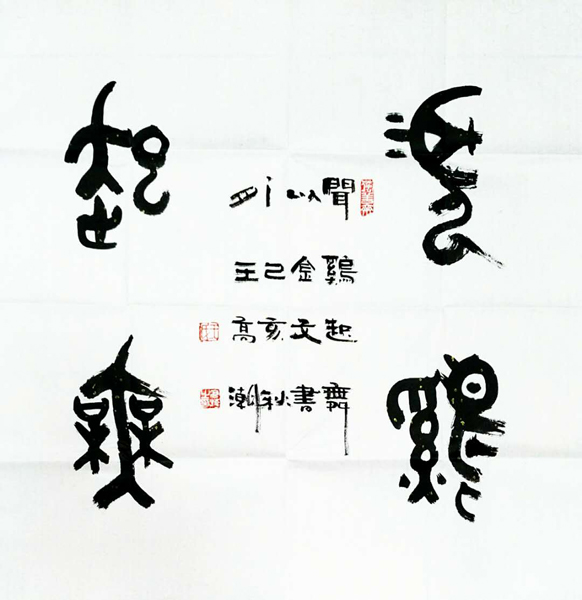 聞鷄
起舞
聞鷄起舞
以金文書
己亥秋
王高潮